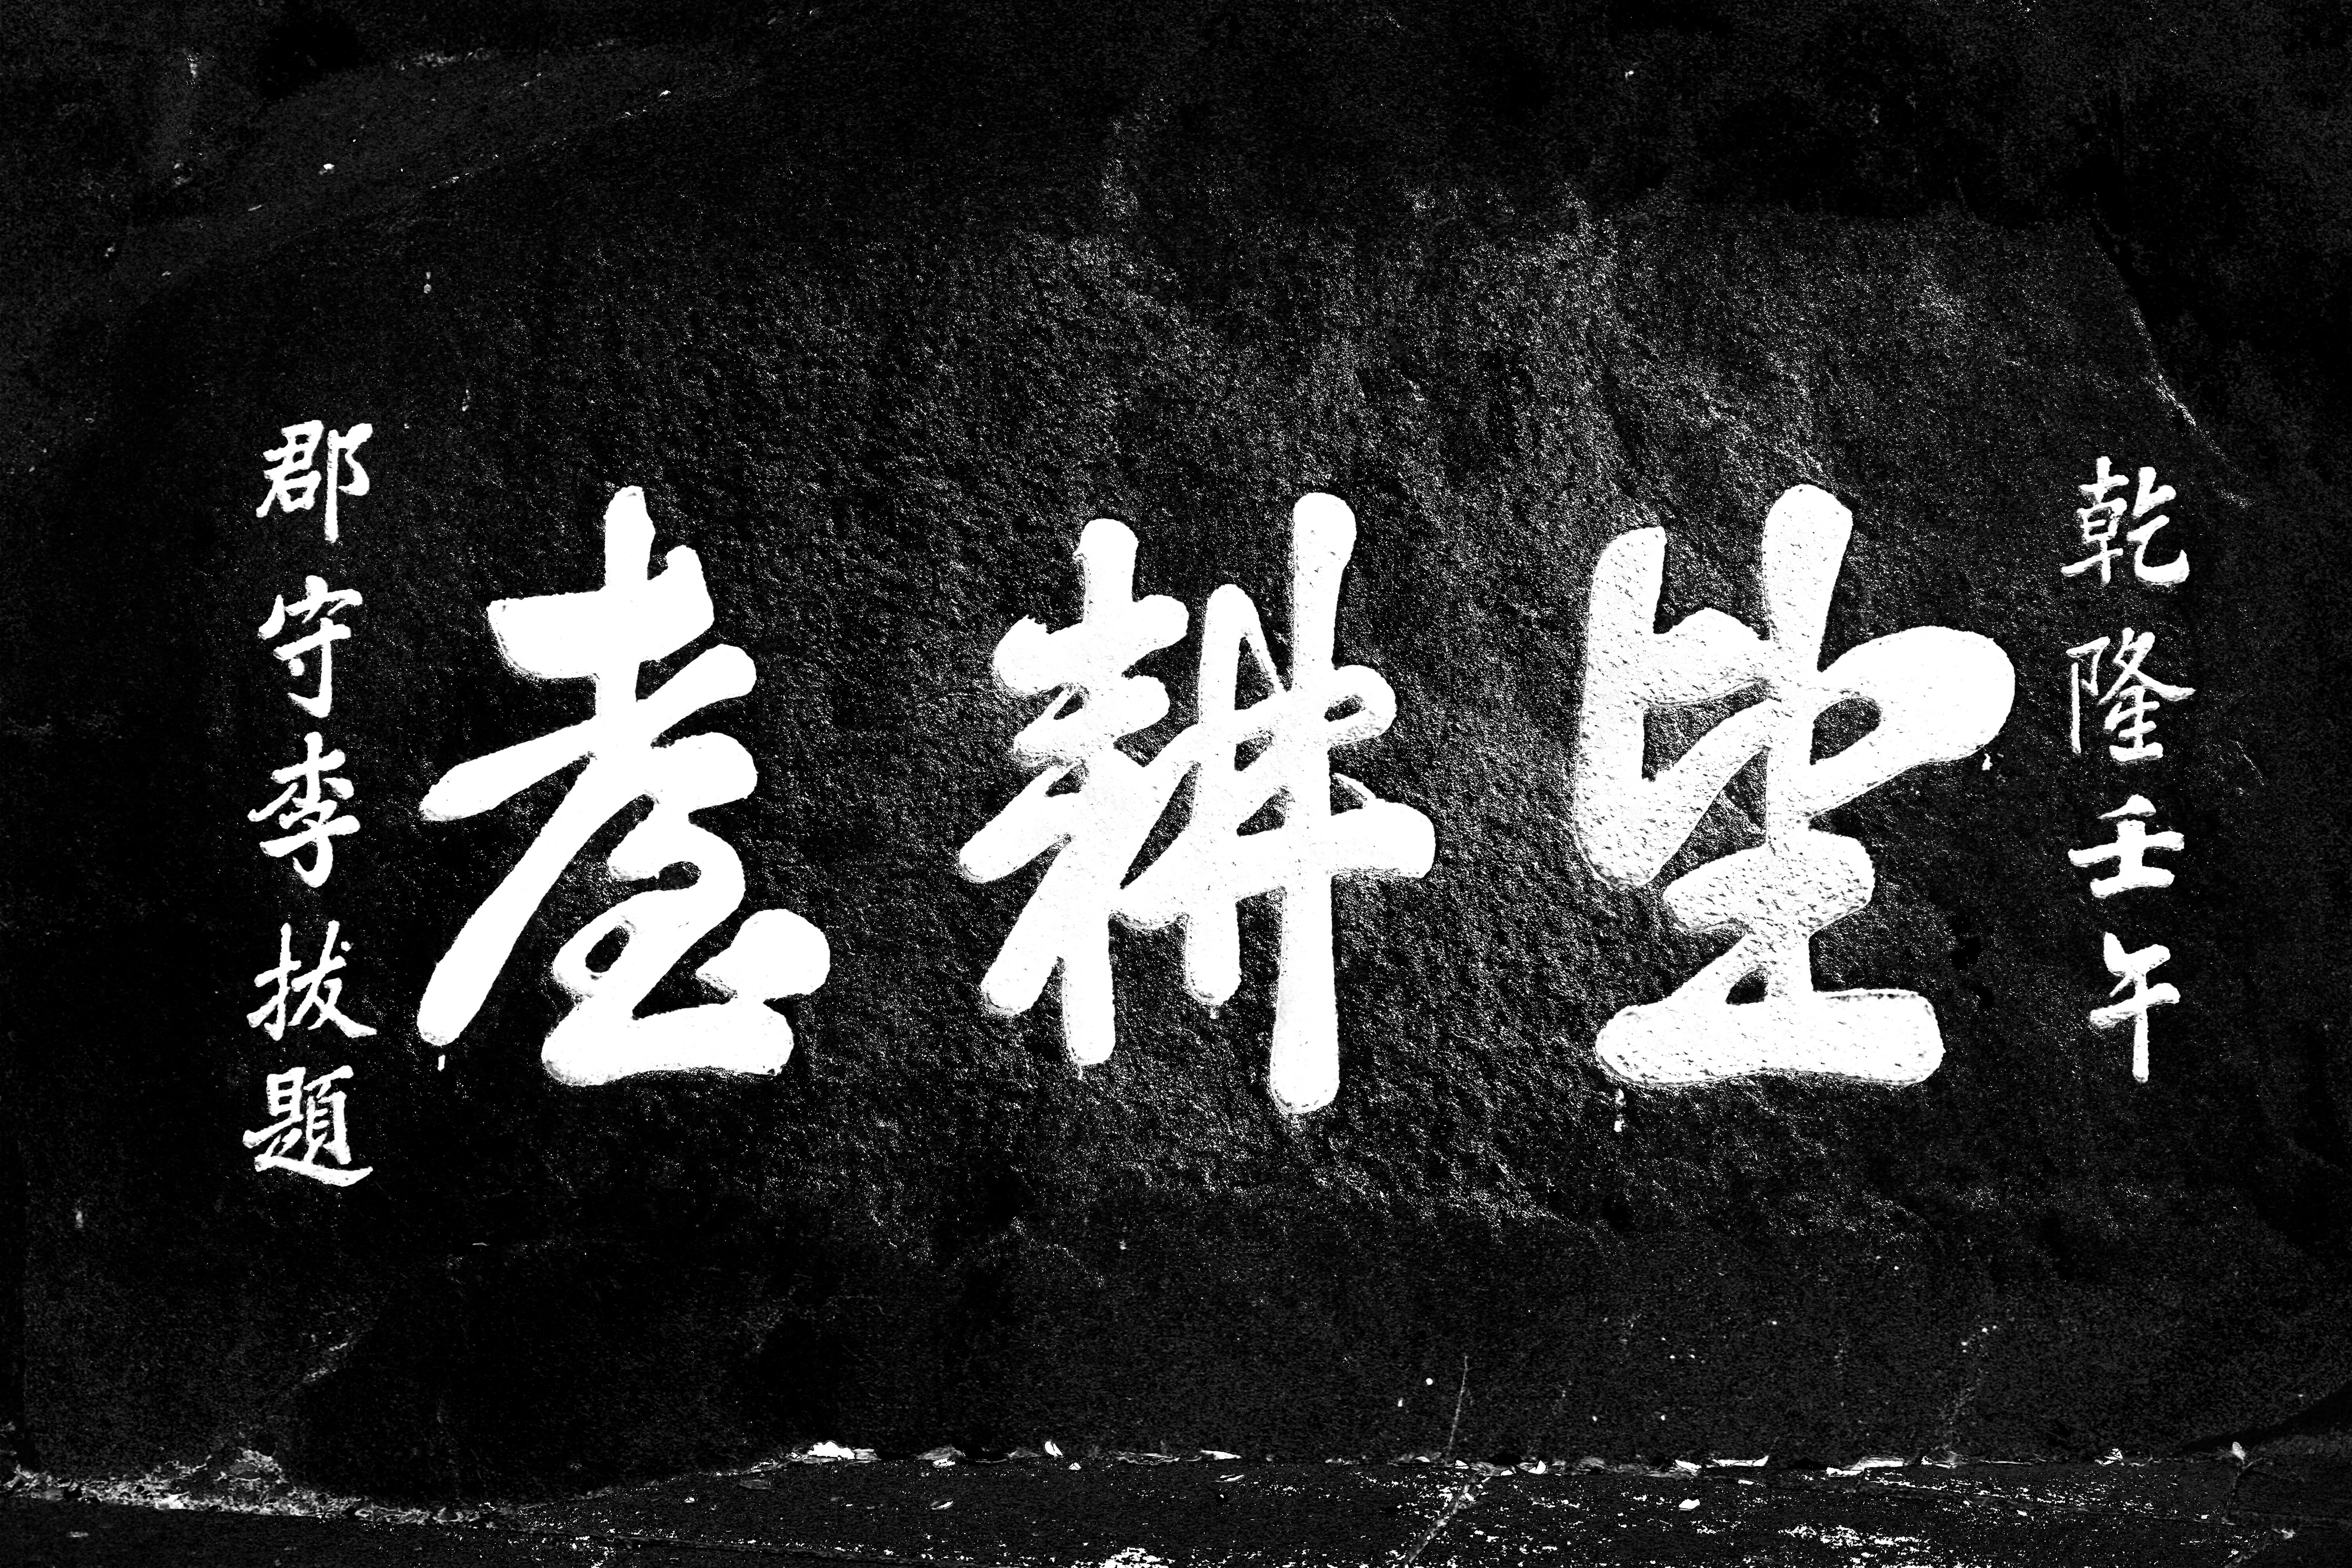 乾隆壬午
望耕臺
郡守李拔題